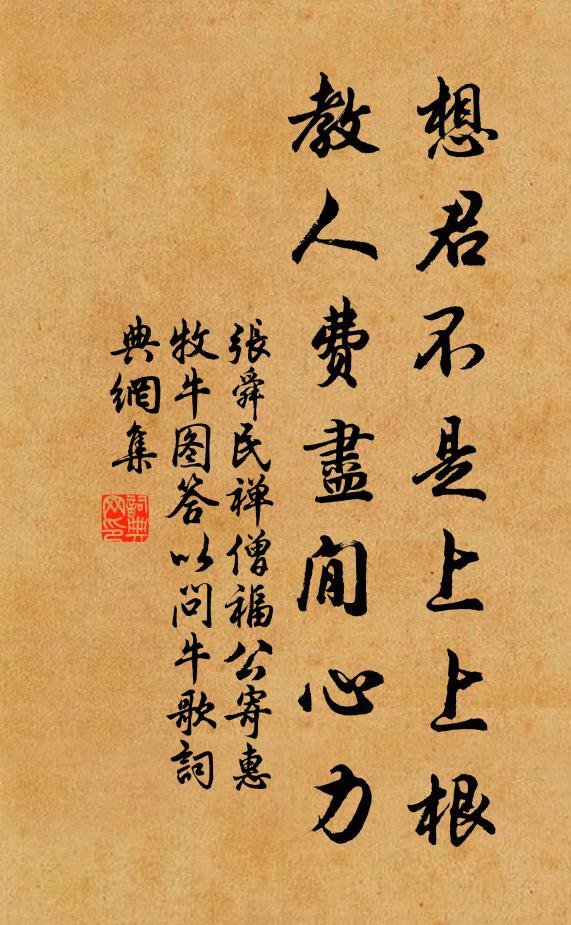 想君不是上上根
教人費盡閒心力
張舜民禅僧福公寄惠
牧牛图答以問牛歌詞
典網集
詞典
网印